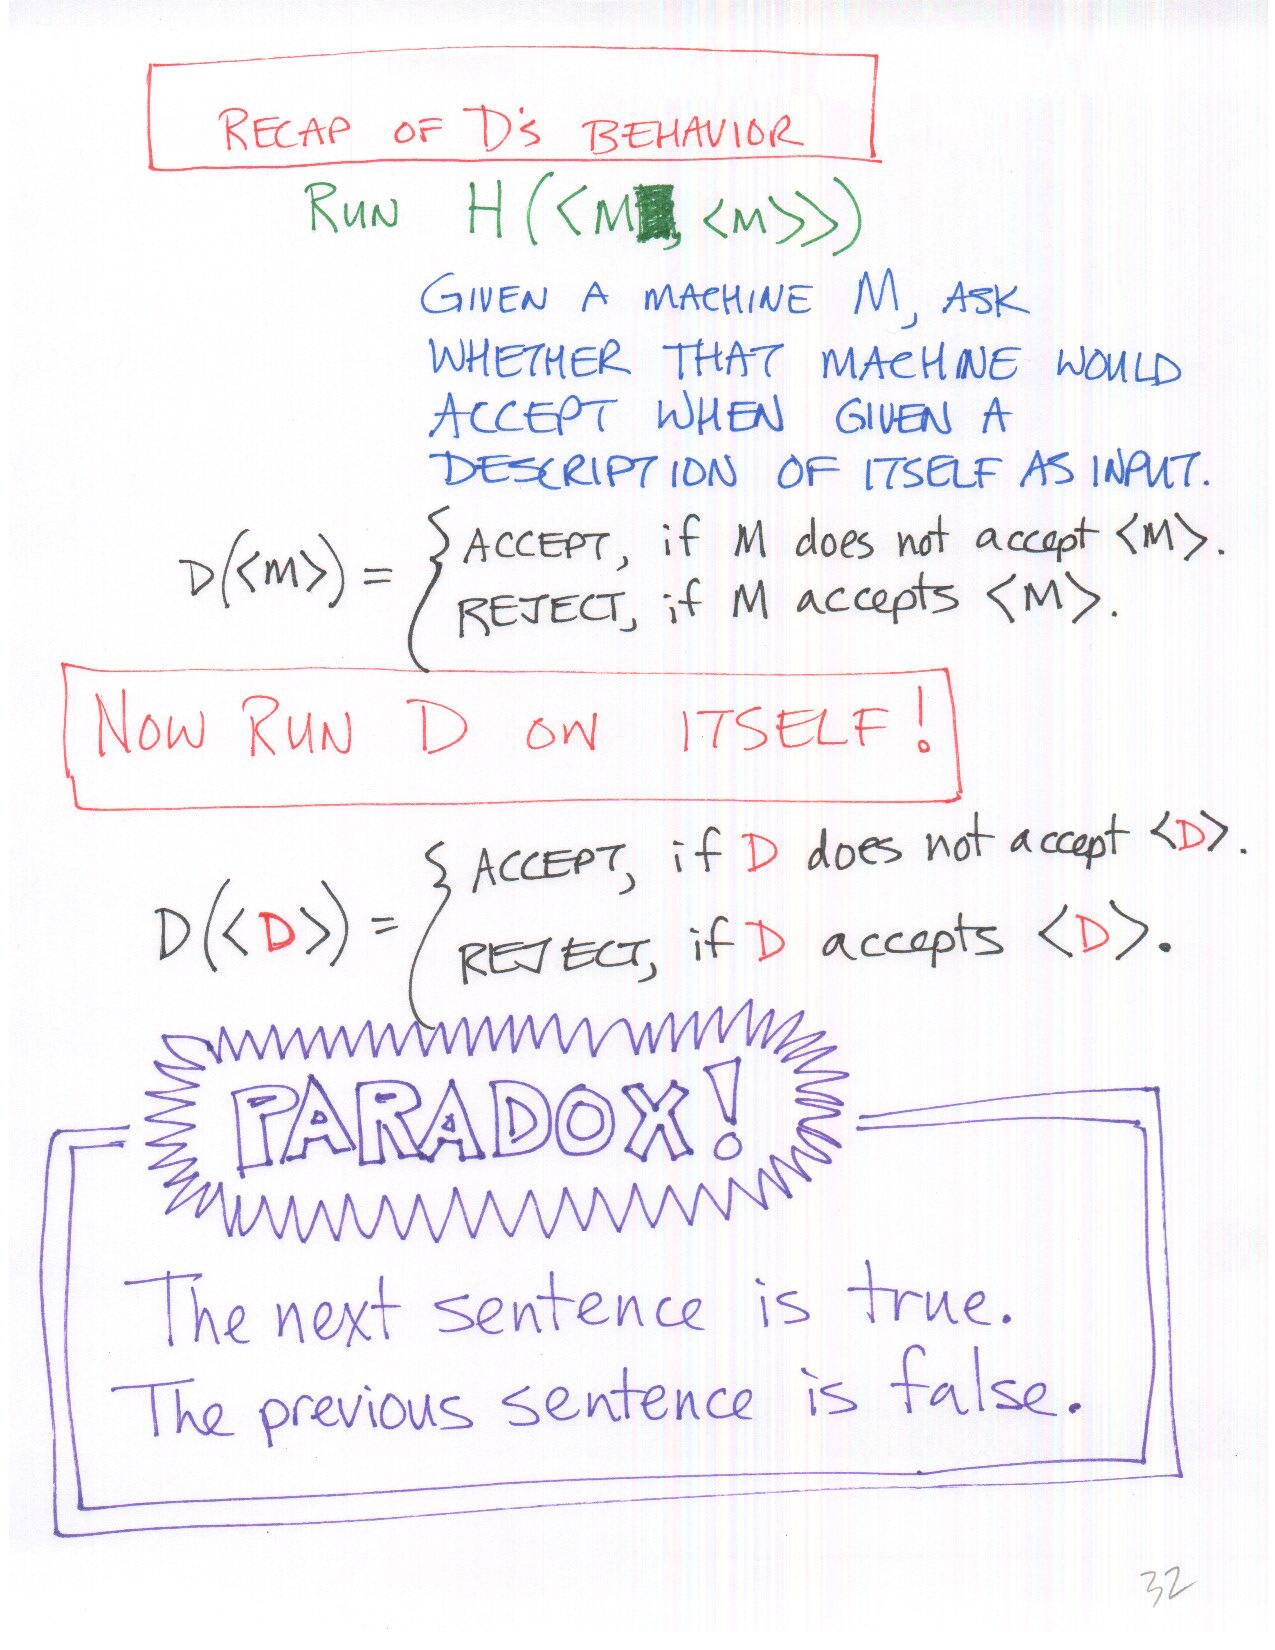 RECAP OF D's BEHAVIOR
RUN H(<M, <M>>)
GIVEN A MACHINE M, ASK
WHETHER THAT MACHINE WOULD
ACCEPT WHEN GIVEN A
DESCRIPTION OF ITSELF AS INPUT.
D(<M>) = { ACCEPT, if M does not accept <M>.
REJECT, if M accepts <M>.
NOW RUN D ON ITSELF!
D(<D>) = { ACCEPT, if D does not accept <D>.
REJECT, if D accepts <D>.
PARADOX!
The next sentence is true.
The previous sentence is false.
32